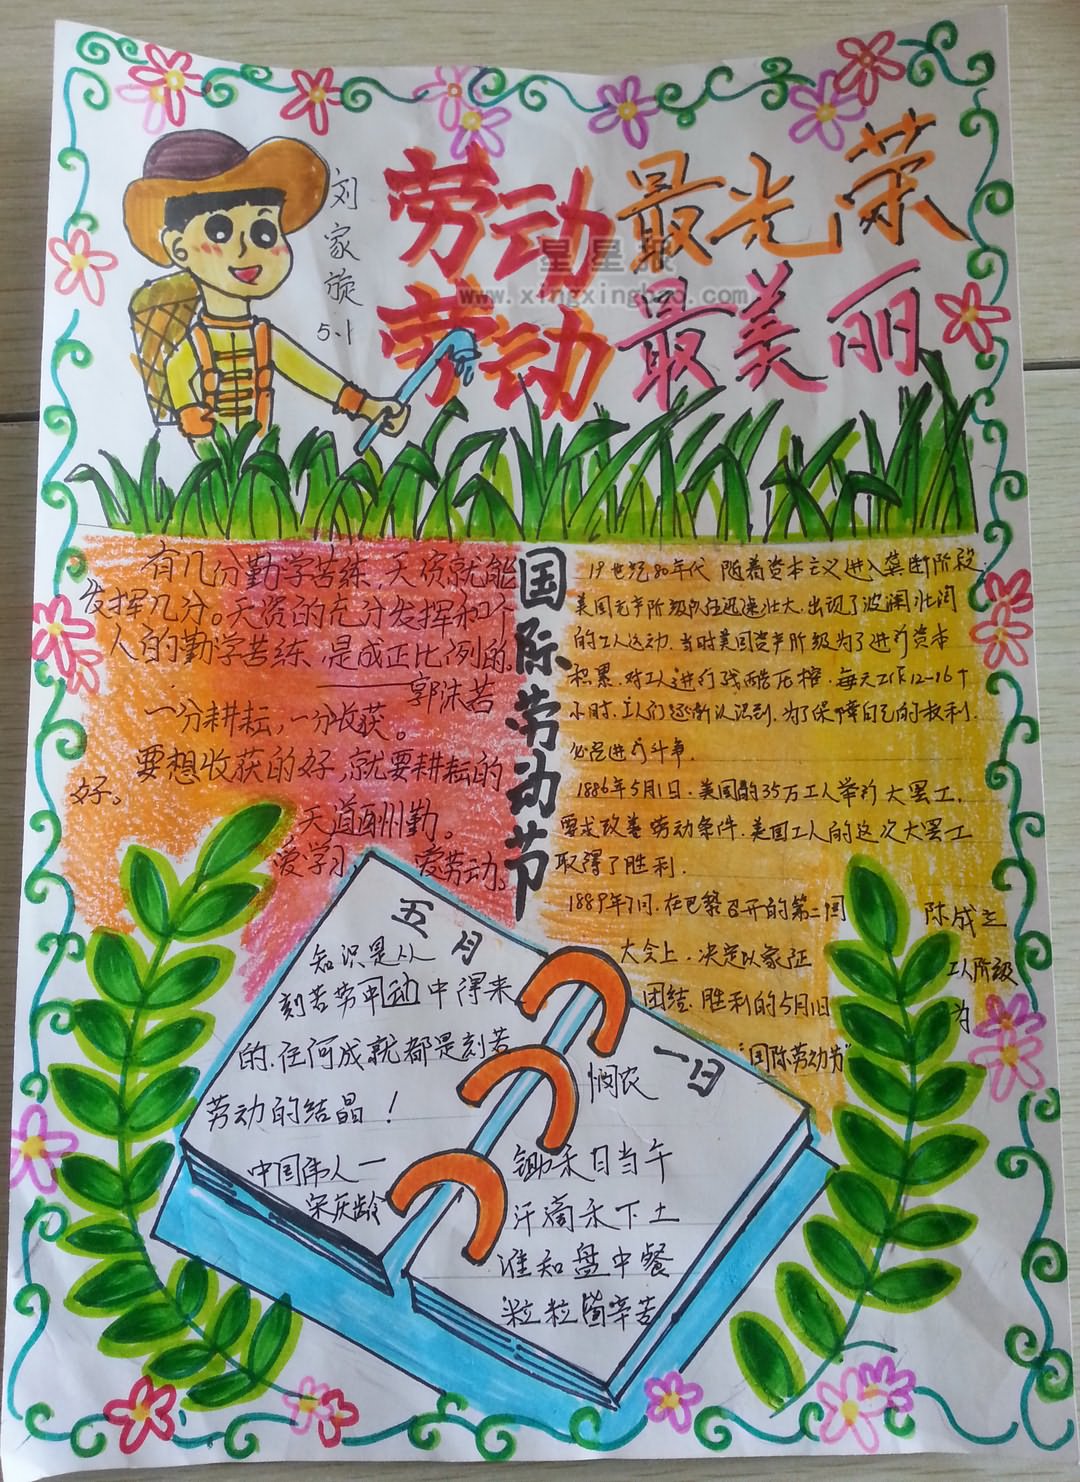 刘家旋
5.1
劳动最光荣
劳动最美丽
星星报
www.xingxingbao.com
有几份勤学苦练,天资就能
发挥几分。天资的充分发挥和个
人的勤学苦练,是成正比例的。
——郭沫若
一分耕耘,一分收获。
要想收获的好,就要耕耘的
好。
天道酬勤。
爱学习,爱劳动。
国际劳动节
19世纪80年代 随着资本主义进入垄断阶段.
美国无产阶级队伍迅速壮大,出现了波澜壮阔
的工人运动.当时美国资产阶级为了进行资本
积累.对工人进行残酷压榨.每天工作12-16个
小时.工人们逐渐认识到.为了保障自己的权利.
必须进行斗争.
1886年5月1日.美国的35万工人举行大罢工.
要求改善劳动条件.美国工人的这次大罢工
取得了胜利.
1889年7月.在巴黎召开的第二国
大会上.决定以象征
工人阶级
团结.胜利的5月1日
为
"国际劳动节"
五月
知识是从
刻苦劳动中得来
的.任何成就都是刻苦
劳动的结晶!
中国伟人—
宋庆龄
一日
悯农
锄禾日当午
汗滴禾下土
谁知盘中餐
粒粒皆辛苦